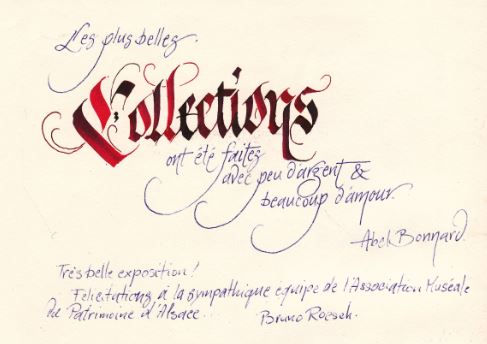 Les plus belles
Collections
ont été faites
avec peu d'argent &
beaucoup d'amour.
Abel Bonnard.
Très belle exposition!
Félicitations à la sympathique equipe de l'Association Muséale
du Patrimoine d'Alsace...
Bruno Roesch.